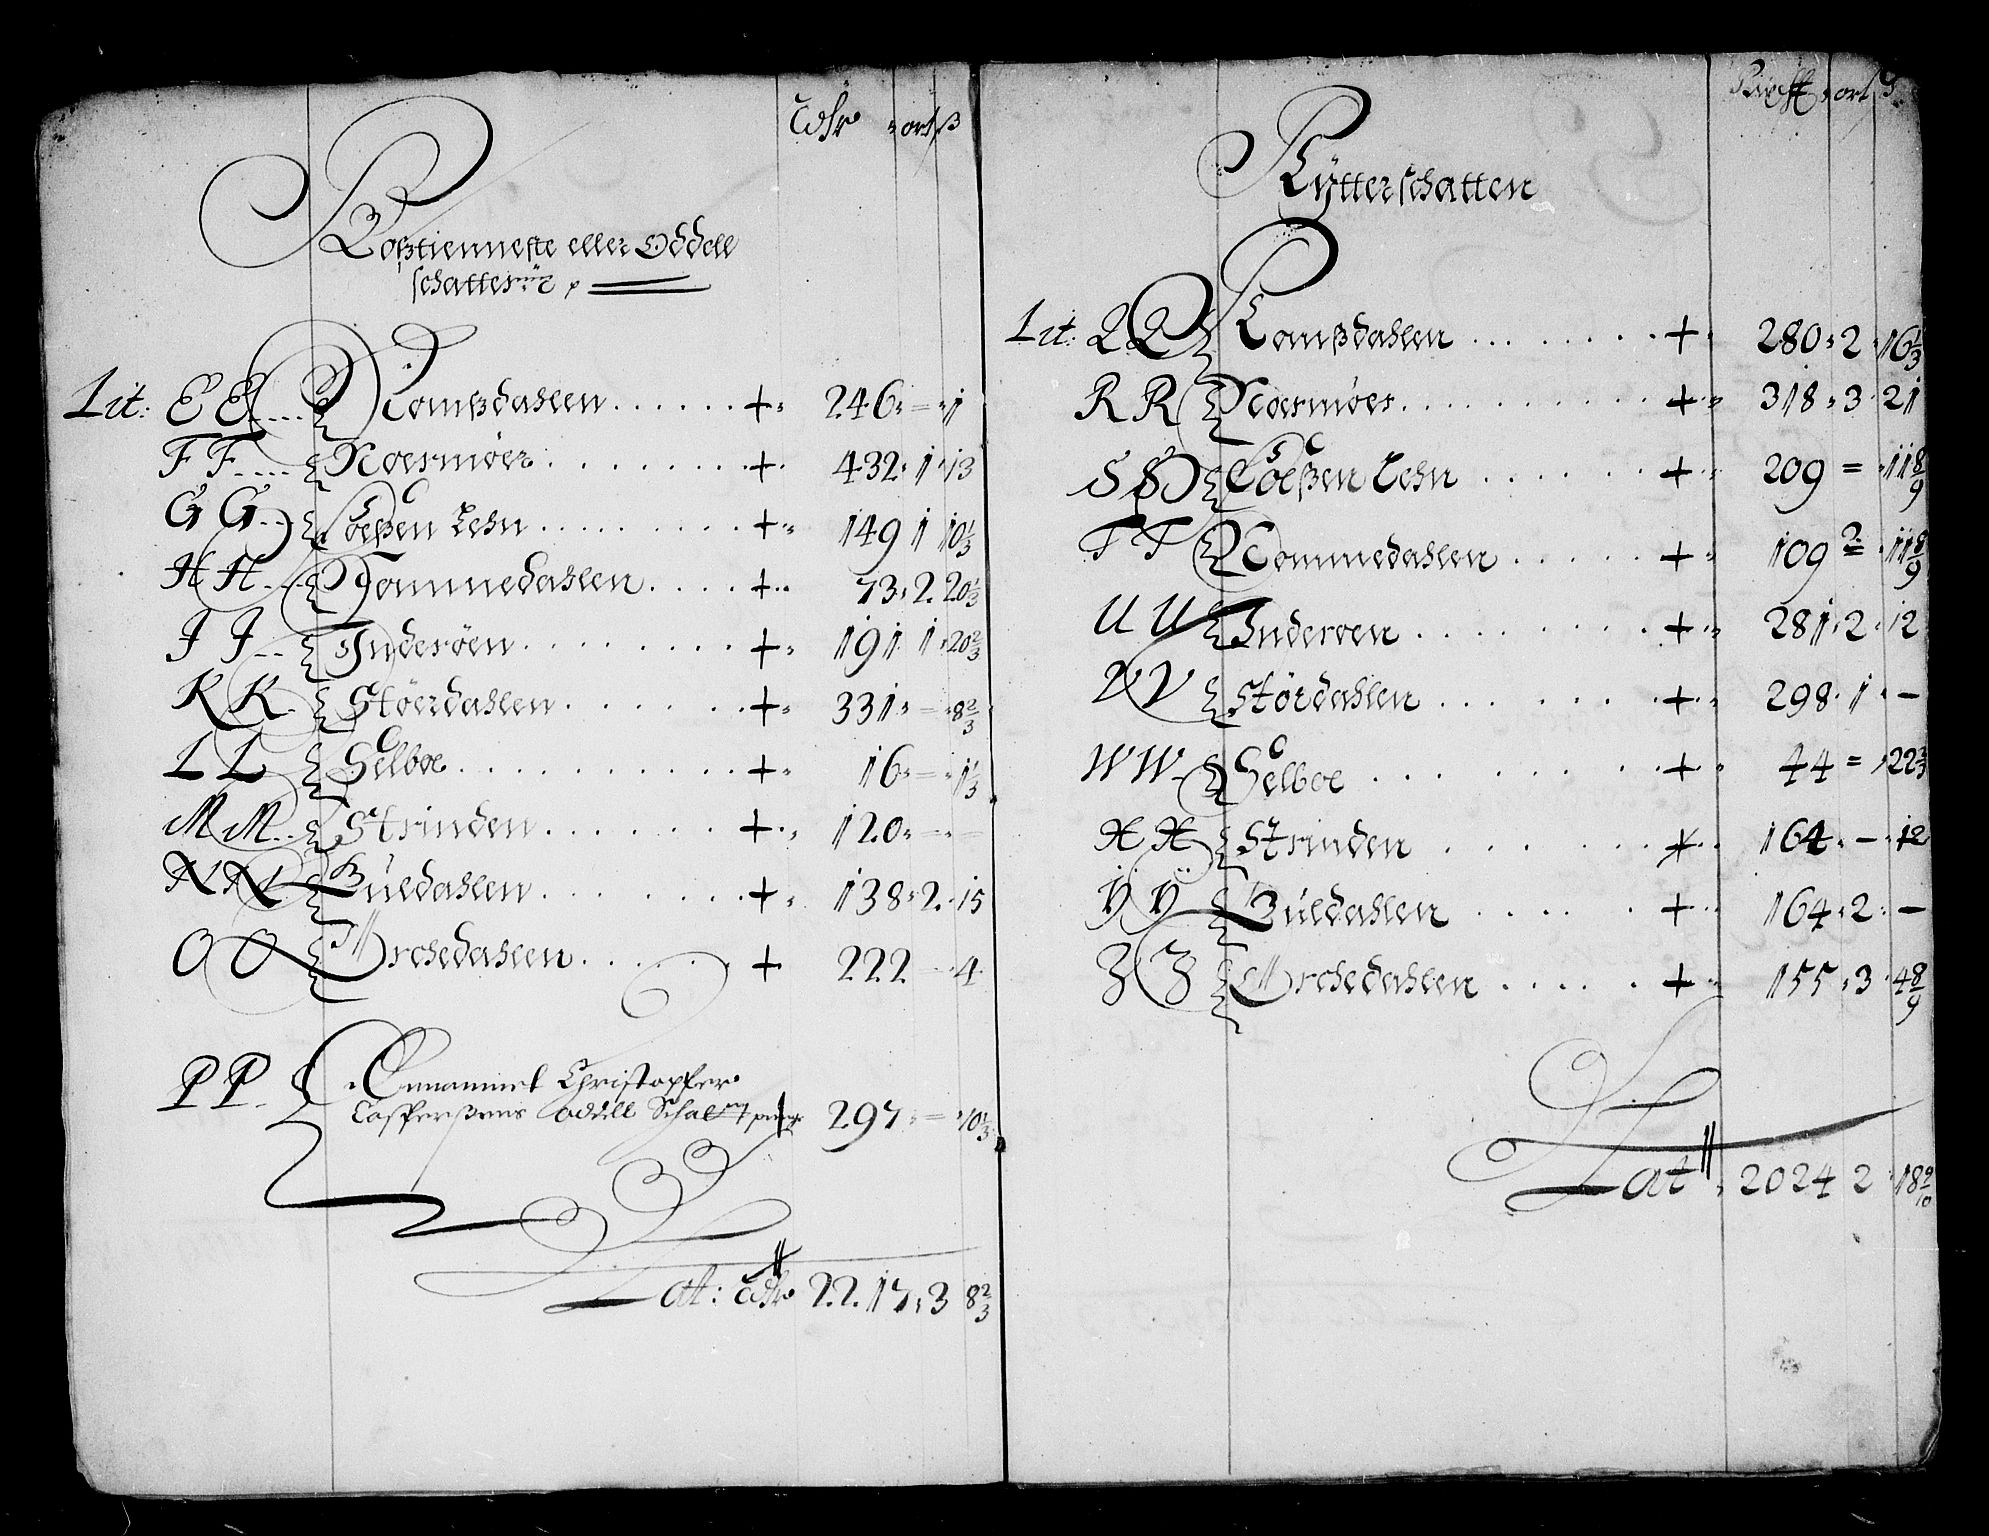 Rdr ort ß
Roßtienneste eller Oddell
schatterne
Lit: EE Romßdahlen + 246 = 1
FF Noermöer + 432 1 13
GG Foeßen Lehn + 149 1 10 1/3
HH Nommedahlen + 73 2 20 1/3
II Inderöen + 191 1 20 2/3
KK Störrdahlen + 331 = 8 2/3
LL Selboe + 16 = 1 1/3
MM Strinden + 120 = =
NN Guldahlen + 138 2 15
OO Orchedahlen + 222 - 4
PP Emanuel Christopher
Casperßens oddell Schatt + 297 = 10 1/3
Lat: Rdr 2217 3 8 2/3
ort ß
Rÿtterschatten
Lit: QQ Romßdahlen + 280 2 16 1/3
RR Noermöer + 318 3 21
SS Foeßen Lehn + 209 = 11 8/9
TT Nommedahlen + 109 2 11 8/9
UU Inderoen + 281 2 12
VV Stördahlen + 298 1 -
WW Selboe + 44 = 22 2/3
XX Strinden + 164 - 12
ÿÿ Guldahlen + 164 2 -
ZZ Orchedahlen + 155 3 4 8/9
Lat 2024 2 18 9/10